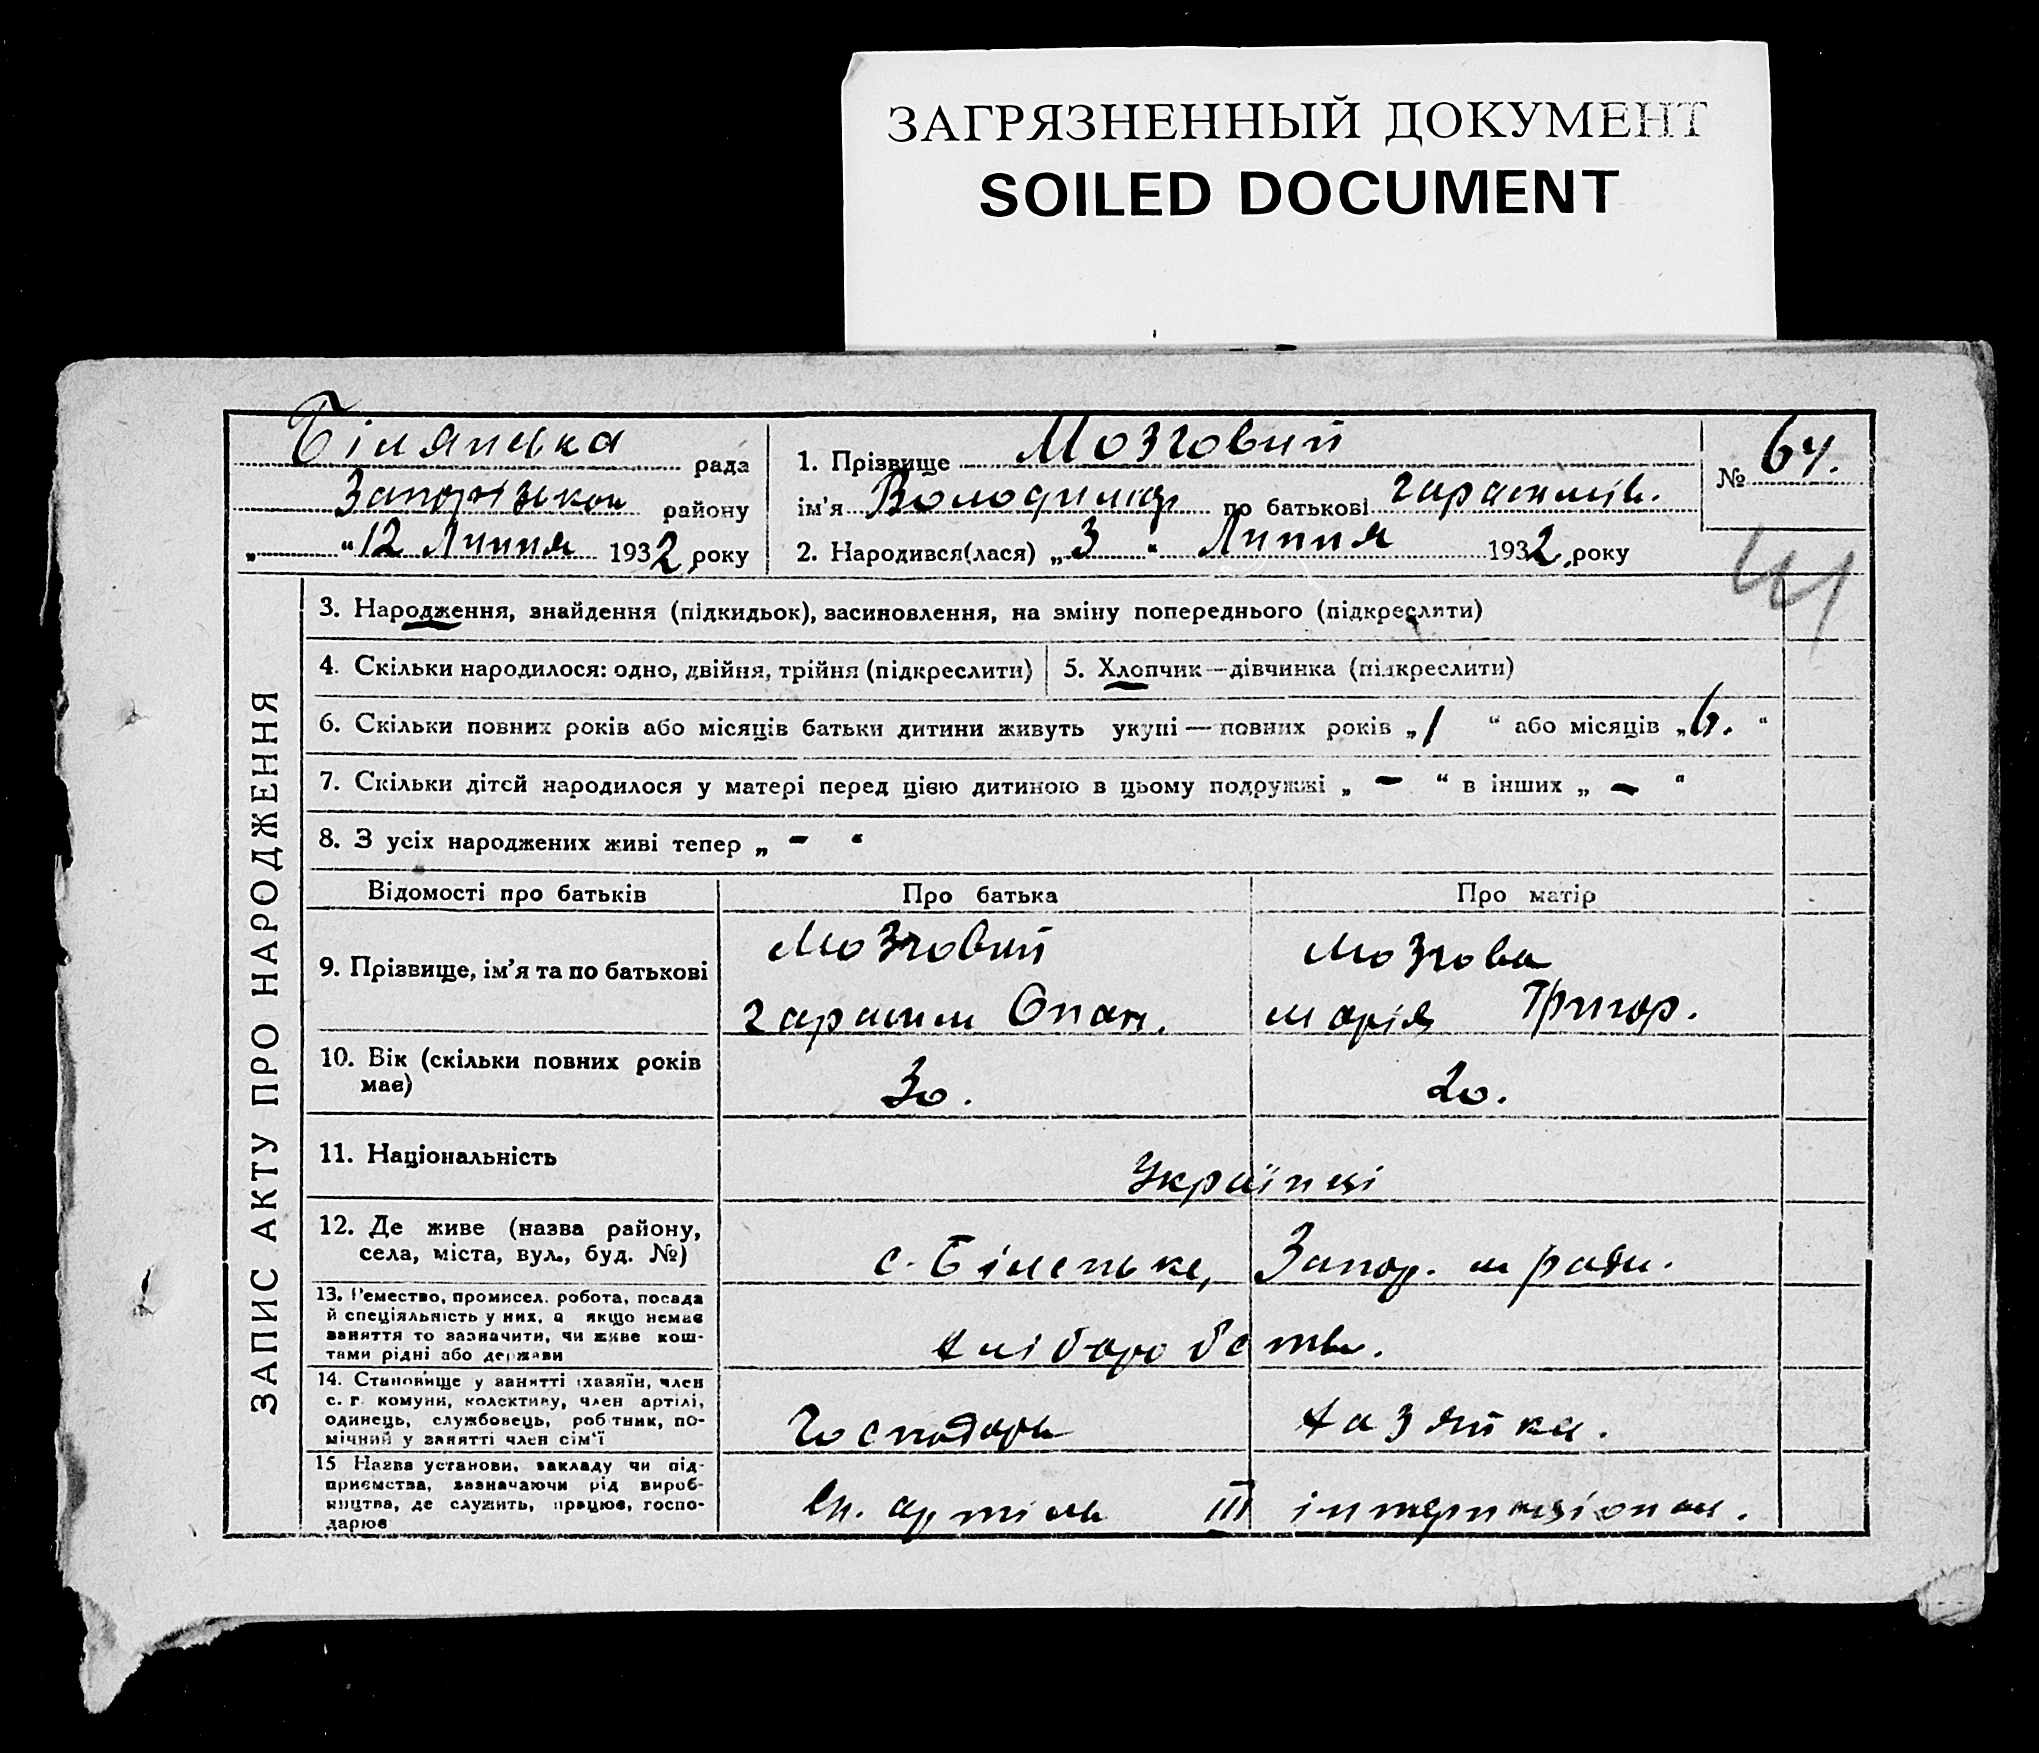 ЗАГРЯЗНЕННЫЙ ДОКУМЕНТ
SOILED DOCUMENT
Біляньска рада
Запорізькои району
„ “ 12 Липня 1932 року
1. Прізвище Мозговий
ім'я Володимир по батькові Гарасимів.
2. Народився(лася) „3“ Липня 1932 року
№ 64.
41
ЗАПИС АКТУ ПРО НАРОДЖЕННЯ
3. Народження, знайдення (підкидьок), засиновлення, на зміну попереднього (підкреслити)
4. Скільки народилося: одно, двійня, трійня (підкреслити) 5. Хлопчик—дівчинка (підкреслити)
6. Скільки повних років або місяців батьки дитини живуть укупі — повних років „1“ або місяців „6.“
7. Скільки дітей народилося у матері перед цією дитиною в цьому подружжі „ - “ в інших „ - “
8. З усіх народжених живі тепер „ - “
Відомості про батьків Про батька Про матір
9. Прізвище, ім'я та по батькові
Мозговий Мозгова
Гарасим Опан. Марія Григор.
10. Вік (скільки повних років
має)
30. 20.
11. Національність
Українці
12. Де живе (назва району,
села, міста, вул., буд. №)
с. Біленьке, Запор. м ради.
13. Ремество, промисел, робота, посада
й спеціяльність у них, а якщо немає
заняття то зазначити, чи живе кош-
тами рідні або держави
хліборобств.
14. Становище у занятті (хазяїн, член
с. г. комуни, колективу, член артілі,
одинець, службовець, робітник, по-
мічний у занятті член сім'ї
Господарь хазяйка.
15 Назва установи, закладу чи під-
приємства, зазначаючи рід вироб-
ництва, де служить, працює, госпо-
дарює
артіль III інтернаціонал.